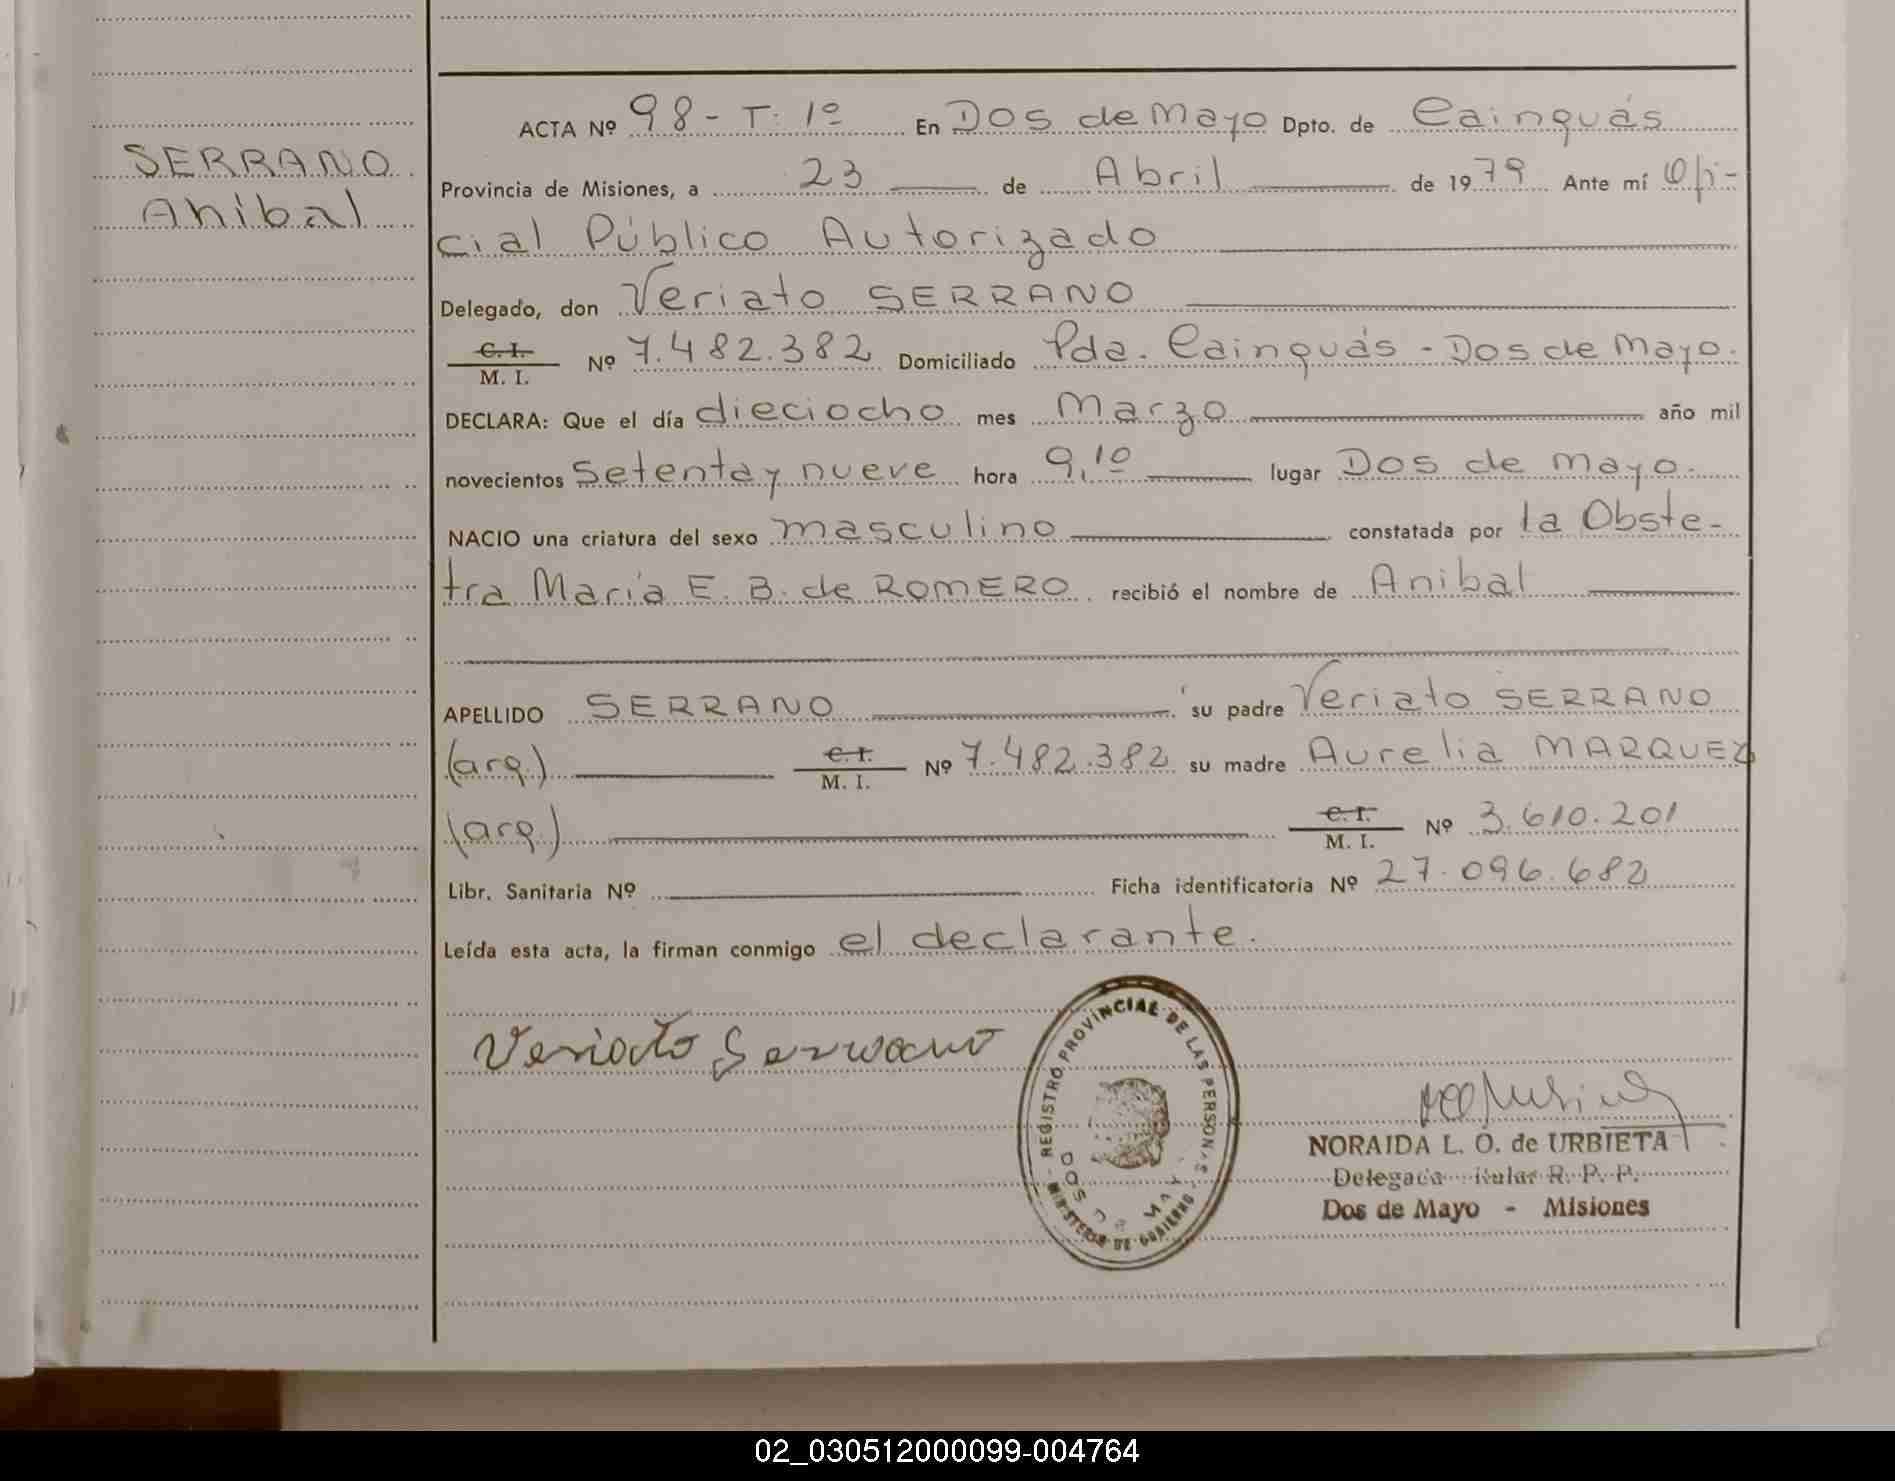 SERRANO
Anibal
ACTA Nº 98 - T: 1º En Dos de Mayo Dpto. de Cainguás
Provincia de Misiones, a 23 de Abril de 1979 Ante mí Ofi-
cial Público Autorizado
Delegado, don Veriato SERRANO
C. I.
M. I. Nº 7.482.382 Domiciliado Pda. Cainguás - Dos de Mayo.
DECLARA: Que el día dieciocho mes Marzo año mil
novecientos setenta y nueve hora 9,10 lugar Dos de Mayo.
NACIO una criatura del sexo masculino constatada por la Obste-
tra María E. B. de ROMERO recibió el nombre de Anibal
APELLIDO SERRANO su padre Veriato SERRANO
(arg.) C. I.
M. I. Nº 7.482.382 su madre Aurelia MARQUEZ
(arg.) C. I.
M. I. Nº 3.610.201
Libr. Sanitaria Nº Ficha identificatoria Nº 27.096.682
Leída esta acta, la firman conmigo el declarante.
Veriato Serrano
REGISTRO PROVINCIAL DE LAS PERSONAS
MINISTERIO DE GOBIERNO
DOS DE MAYO
NORAIDA L. O. de URBIETA
Delegada Titular R. P. P.
Dos de Mayo - Misiones
02_030512000099-004764